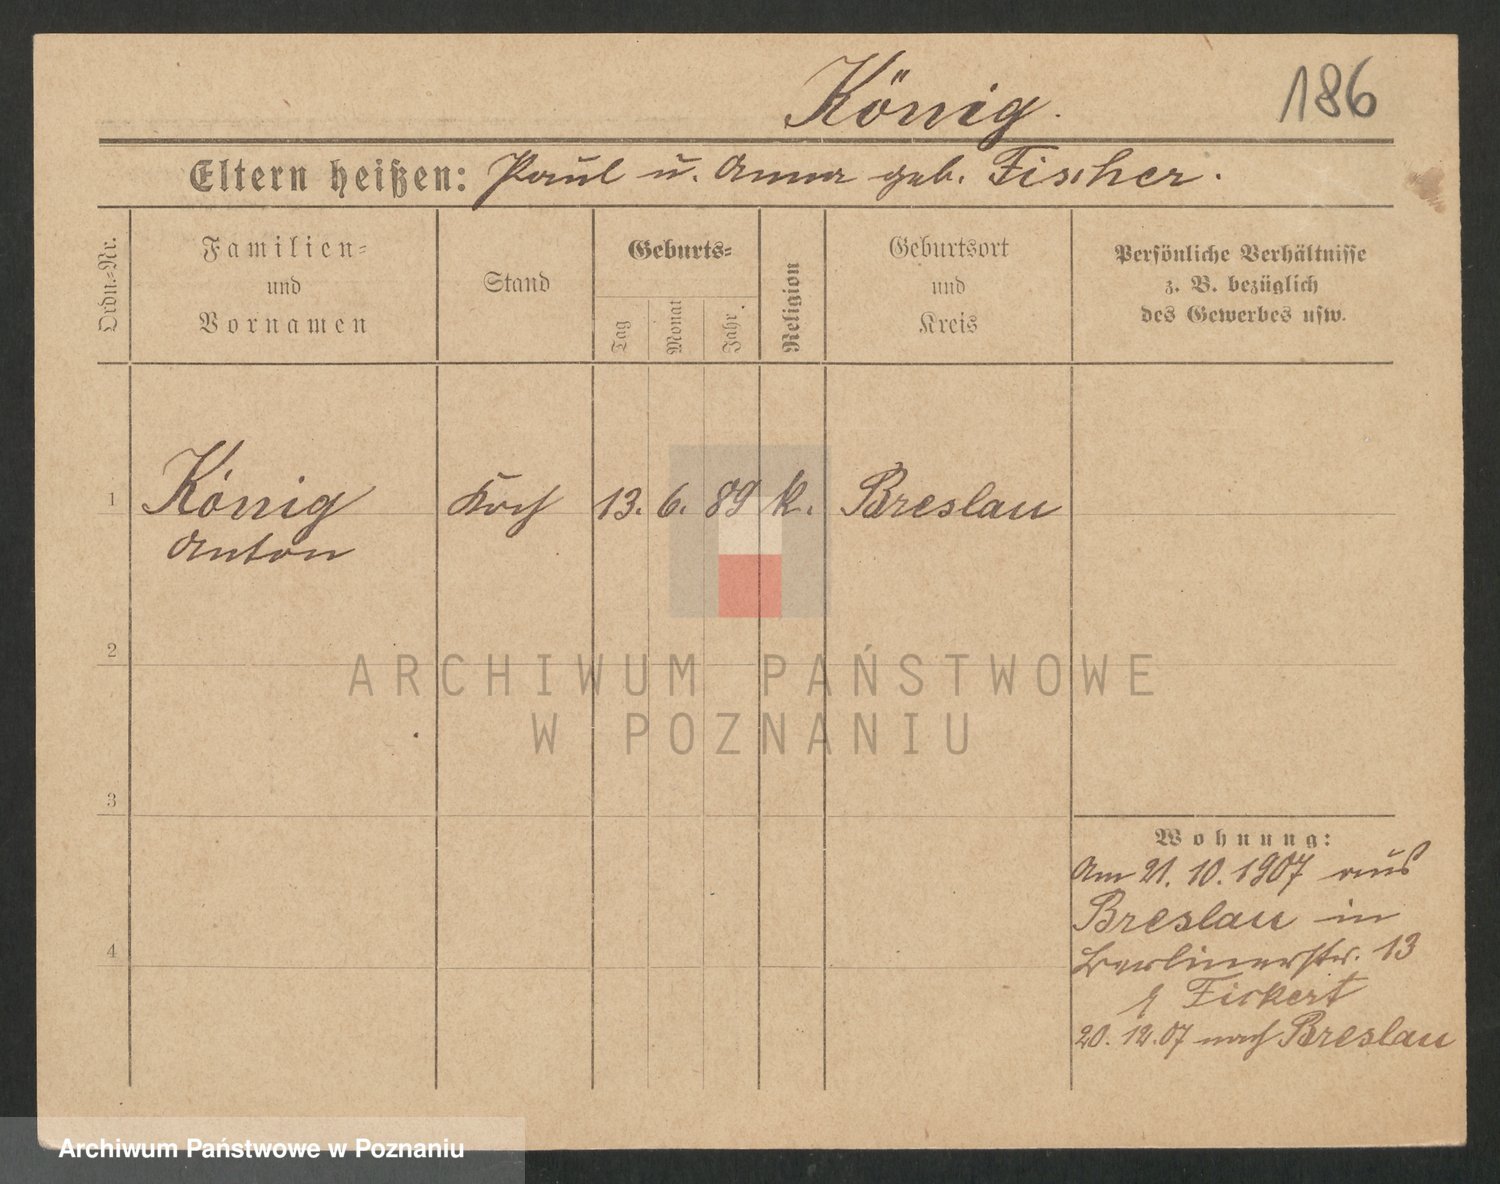 König.
186
Eltern heißen: Paul u. Anna geb. Fischer.
Ordn.=Nr.
Familien=
und
Vornamen
Stand
Geburts=
Tag
Monat
Jahr
Religion
Geburtsort
und
Kreis
Persönliche Verhältnisse
z. B. bezüglich
des Gewerbes usw.
1 König Koch 13. 6. 89 k. Breslau
Anton
2
ARCHIWUM PAŃSTWOWE
W POZNANIU
3
Wohnung:
Am 21. 10. 1907 aus
Breslau in
4
Berlinerstr. 13
Fickert
20. 12. 07 nach Breslau
Archiwum Państwowe w Poznaniu